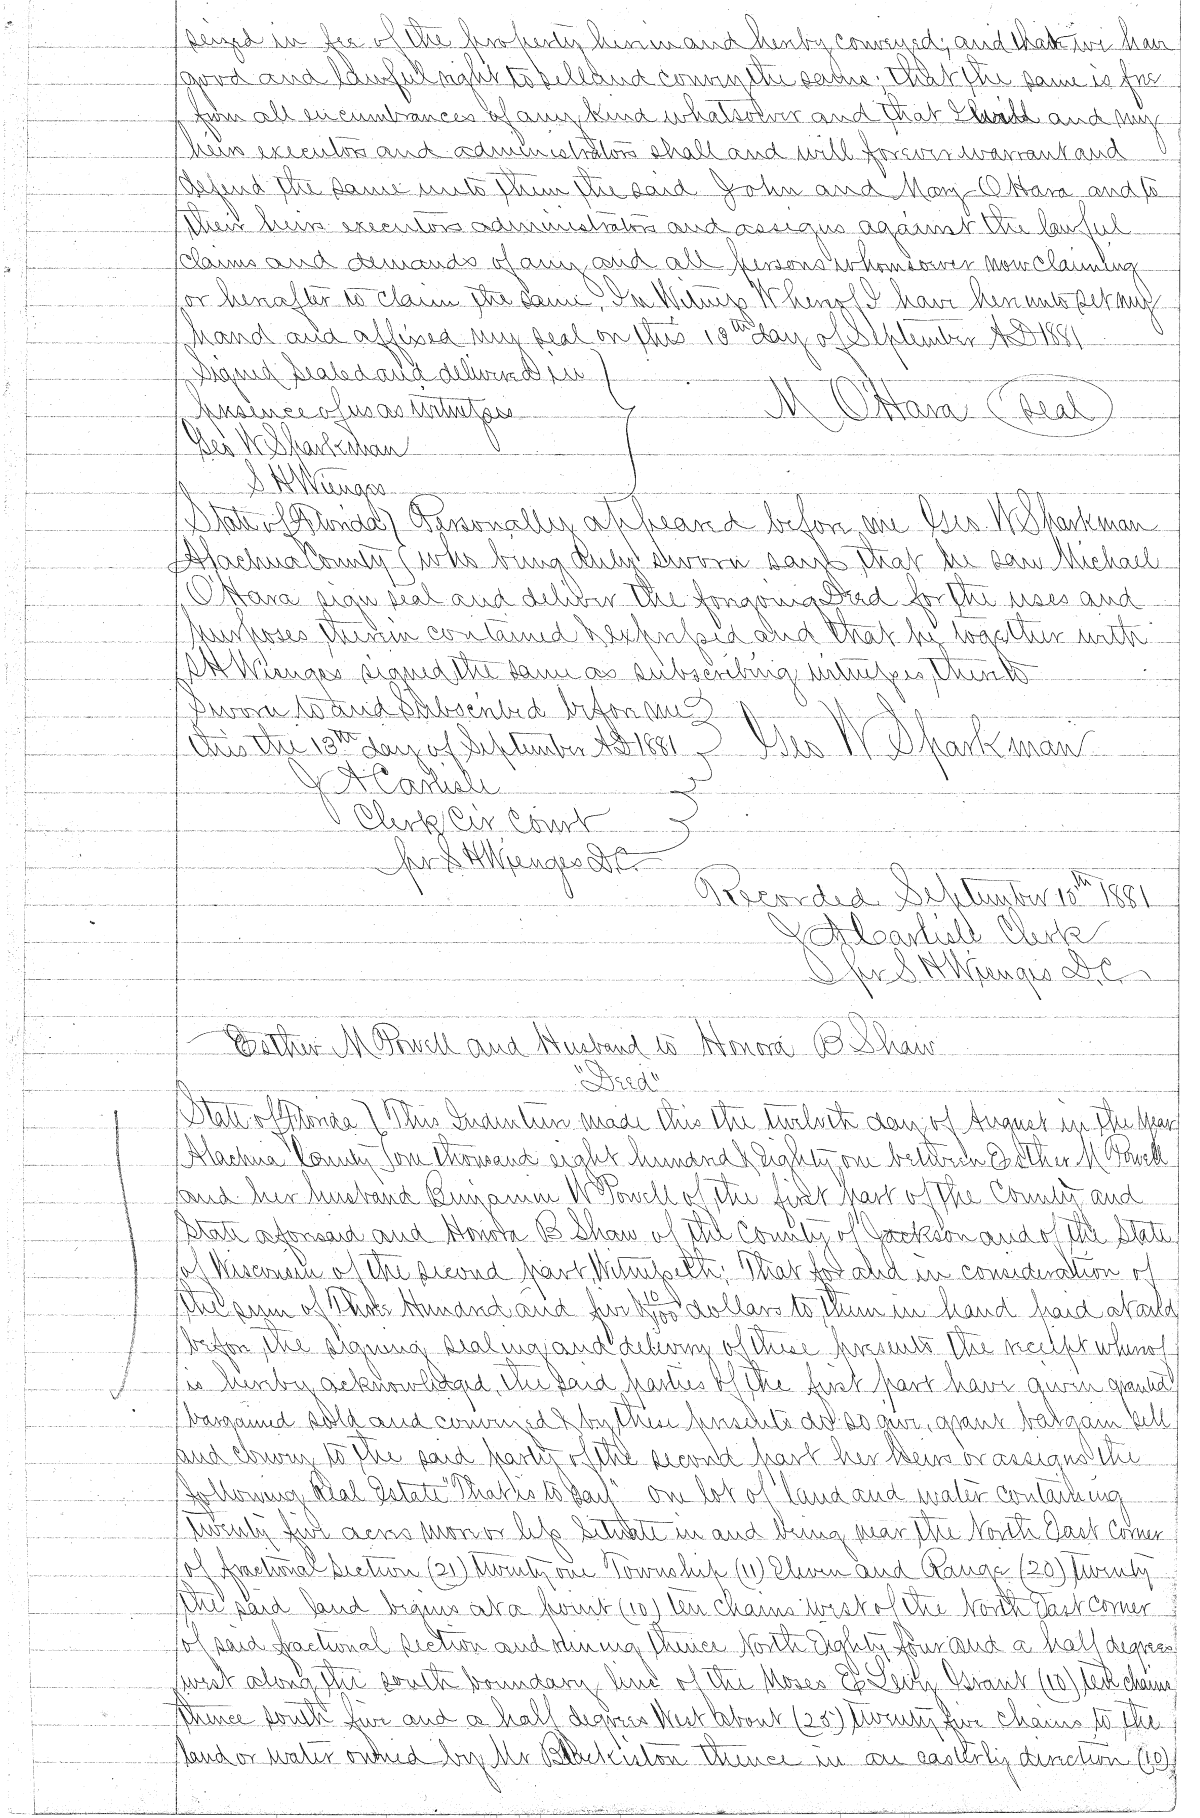 seized in fee of the property herein and hereby conveyed; and that we have
good and lawful right to sell and convey the same; that the same is free
from all encumbrances of any kind whatsoever and that I will and my
heirs executors and administrators shall and will forever warrant and
defend the same unto them the said John and Mary O'Hara and to
their heirs executors administrators and assigns against the lawful
claims and demands of any and all persons whomsoever now claiming
or hereafter to claim the same. In Witness Whereof I have hereunto set my
hand and affixed my seal on this 13th day of September AD 1881
Signed Sealed and delivered in
presence of us as witnesses
M O'Hara (seal)
Geo W Sparkman
S H Wienges
State of Florida } Personally appeared before me Geo. W Sparkman
Alachua County } who being duly sworn says that he saw Michael
O'Hara sign seal and deliver the foregoing Deed for the uses and
purposes therein contained & expressed and that he together with
S H Wienges signed the same as subscribing witnesses thereto
Sworn to and Subscribed before me
this the 13th day of September AD 1881 Geo W Sparkman
J A Carlisle
Clerk Cir Court
pr S H Wienges D.C.
Recorded September 13th 1881
J A Carlisle Clerk
pr S H Wienges D.C.
Esther M Powell and Husband to Honora B Shaw
"Deed"
State of Florida } This Indenture made this the twelveth day of August in the year
Alachua County } one thousand eight hundred & Eighty one between Esther M Powell
and her husband Benjamin W Powell of the first part of the County and
State aforesaid and Honora B Shaw of the County of Jackson and of the State
of Wisconsin of the second part, Witnesseth: That for and in consideration of
the sum of Three Hundred and five & 10/100 dollars to them in hand paid at and
before the signing sealing and delivery of these presents the receipt whereof
is hereby acknowledged, the said parties of the first part have given granted
bargained sold and conveyed & by these presents do so give, grant bargain sell
and convey to the said party of the second part her heirs or assigns the
following Real Estate "That is to say" one lot of land and water containing
twenty five acres more or less Situate in and being near the North East corner
of fractional section (21) twenty one Township (11) Eleven and Range (20) twenty
the said land begins at a point (10) ten chains west of the North East corner
of said fractional section and runing thence North Eighty four and a half degrees
west along the south boundary line of the Moses E Levy Grant (10) ten chains
thence south five and a half degrees West about (25) twenty five chains to the
land or water owned by Mr Blackiston thence in an easterly direction (10)